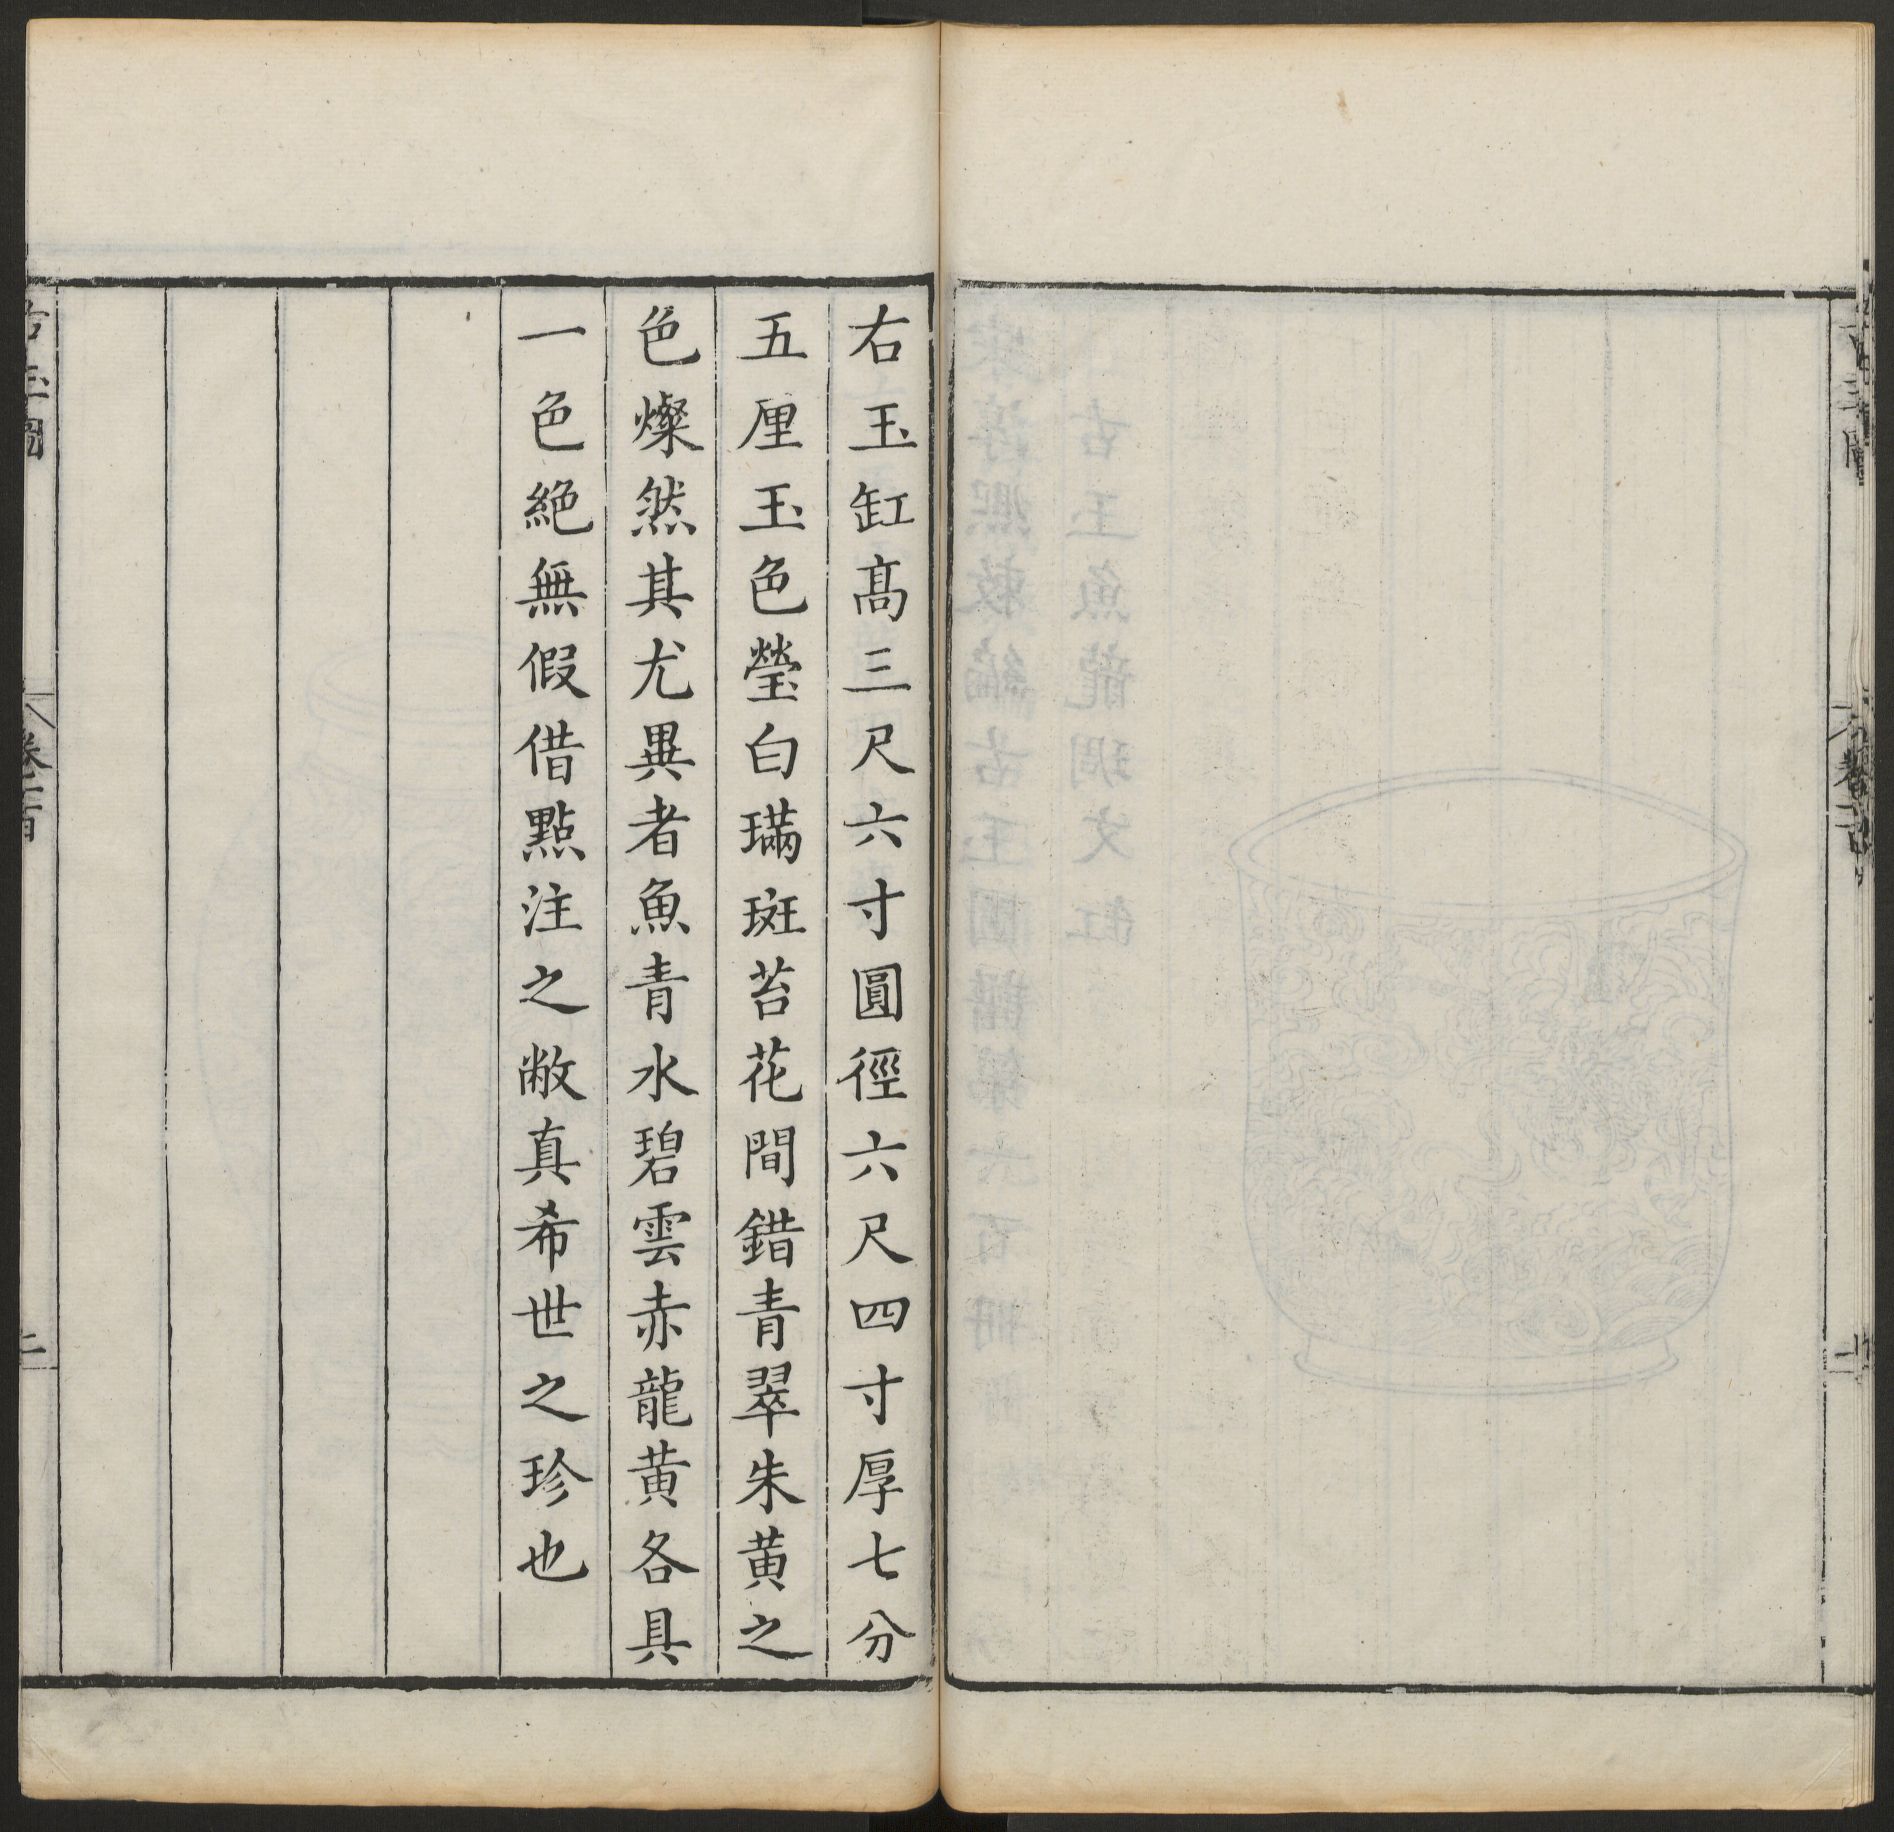 右玉缸髙三尺六寸圓徑六尺四寸厚七分
五厘玉色瑩白璊斑苔花間錯青翠朱黄之
色燦然其尤異者魚青水碧雲赤龍黄各具
一色絕無假借點注之敝真希世之珍也
古玉圖
卷一百
二